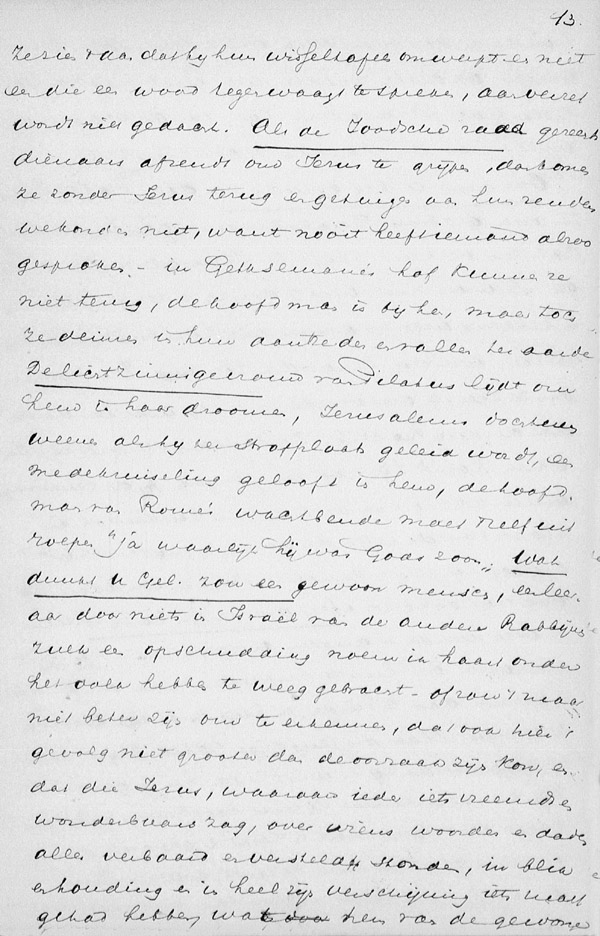 13.
ze zien dat hy hun wisseltafels omwerpt er niet
een die een woord tegen waagt te spreken, aan verzet
wordt niet gedacht. Als de Joodsche raad gerechts
dienaars afzendt om Jezus te grijpen, dan komen
ze zonder Jezus terug en getuigen aan hun zenders
we konden niet, want nooit heeft iemand alzoo
gesproken - in Gethsemané's hof kunnen ze
niet terug, de hoofdman is by hen, maar toch
ze deinzen in hun aantreden en vallen ter aarde
De lichtzinnige vrouw van Pilatus lijdt om
hem in haar droomen, Jeruzalems dochteren
weenen als hy ter strafplaats geleid wordt, een
medekruiseling gelooft in hem, de hoofd-
man van Rome's wachtbende moet zelf uit
roepen "ja waarlijk hij was Gods zoon". Wat
dunkt U Gel. zou een gewoon mensch, een leer-
aar door niets in Israël van de andere Rabbijns
zulk een opschudding noem in haast onder
het volk hebben te weeg gebracht - of zou 't maar
niet beter zijn om te erkennen, dat ook hier 't
gevolg niet grooter dan de oorzaak zijn kon, en
dat die Jezus, waaraan ieder iets vreemds en
wonderbaars zag, over wiens woorden en daden
allen verbaasd en versteld stonden, in blik
en houding en in heel zijn verschijning iets moet
gehad hebben, wat hem van de gewone